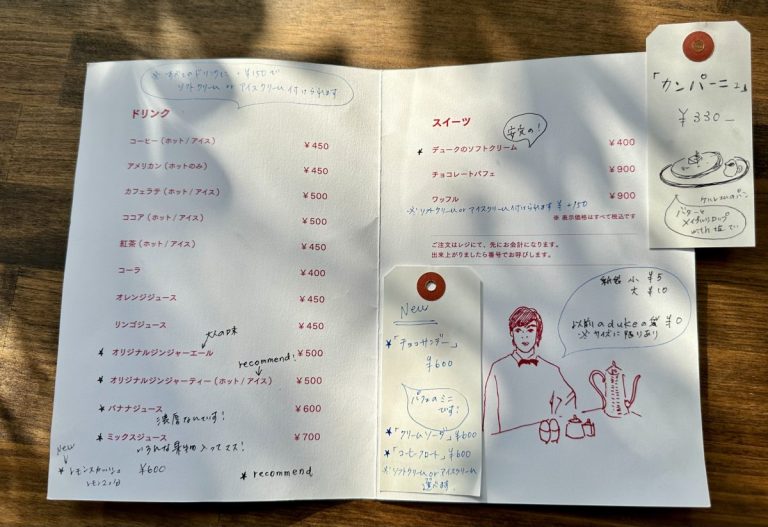 ※ すべてのドリンクに +¥150で
ソフトクリーム or アイスクリーム 付けられます
ドリンク
コーヒー (ホット / アイス) ¥450
アメリカン (ホットのみ) ¥450
カフェラテ (ホット / アイス) ¥500
ココア (ホット / アイス) ¥500
紅茶 (ホット / アイス) ¥450
コーラ ¥400
オレンジジュース ¥450
リンゴジュース ¥450
大人の味
* オリジナルジンジャーエール ¥500
recommend!
* オリジナルジンジャーティー (ホット / アイス) ¥500
* バナナジュース ¥600
濃厚なんです!
* ミックスジュース ¥700
いろんな果物入ってマス!
New
* レモンスカッシュ ¥600
* recommend
スイーツ
安定の!
* デュークのソフトクリーム ¥400
チョコレートパフェ ¥900
ワッフル ¥900
※ソフトクリーム or アイスクリーム付けられます ¥+150
※ 表示価格はすべて税込です
ご注文はレジにて、先にお会計になります。
出来上がりましたら番号でお呼びします。
New
*「チョコサンデー」
¥600
パフェのミニ
です!
*「クリームソーダ」¥600
*「コーヒーフロート」¥600
※ソフトクリーム or アイスクリーム
選べます
紙袋 小 ¥5
大 ¥10
以前のdukeの袋 ¥0
※サイズに限りあり
「カンパーニュ」
¥330-
バターと
メイプルシロップ
with 塩で